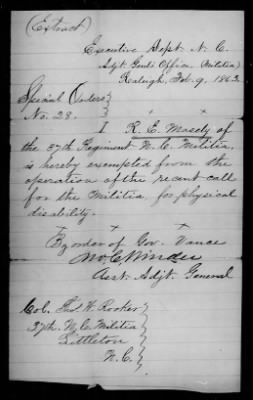 (Extract)
Executive Dept N. C.
Adjt. Genls Office, (Militia)
Raleigh, Feb. 9, 1863.
Special Orders
No. 28.
x x
I R. E. Mosely of
the 37th Regiment N. C. Militia,
is hereby exempted from the
operation of the recent call
for the Militia, for physical
disability.
x x x
By order of Gov. Vance
Jno C Winder
Asst. Adjt. General
Col. W. Rooker
37th N. C. Militia
Littleton
N. C.